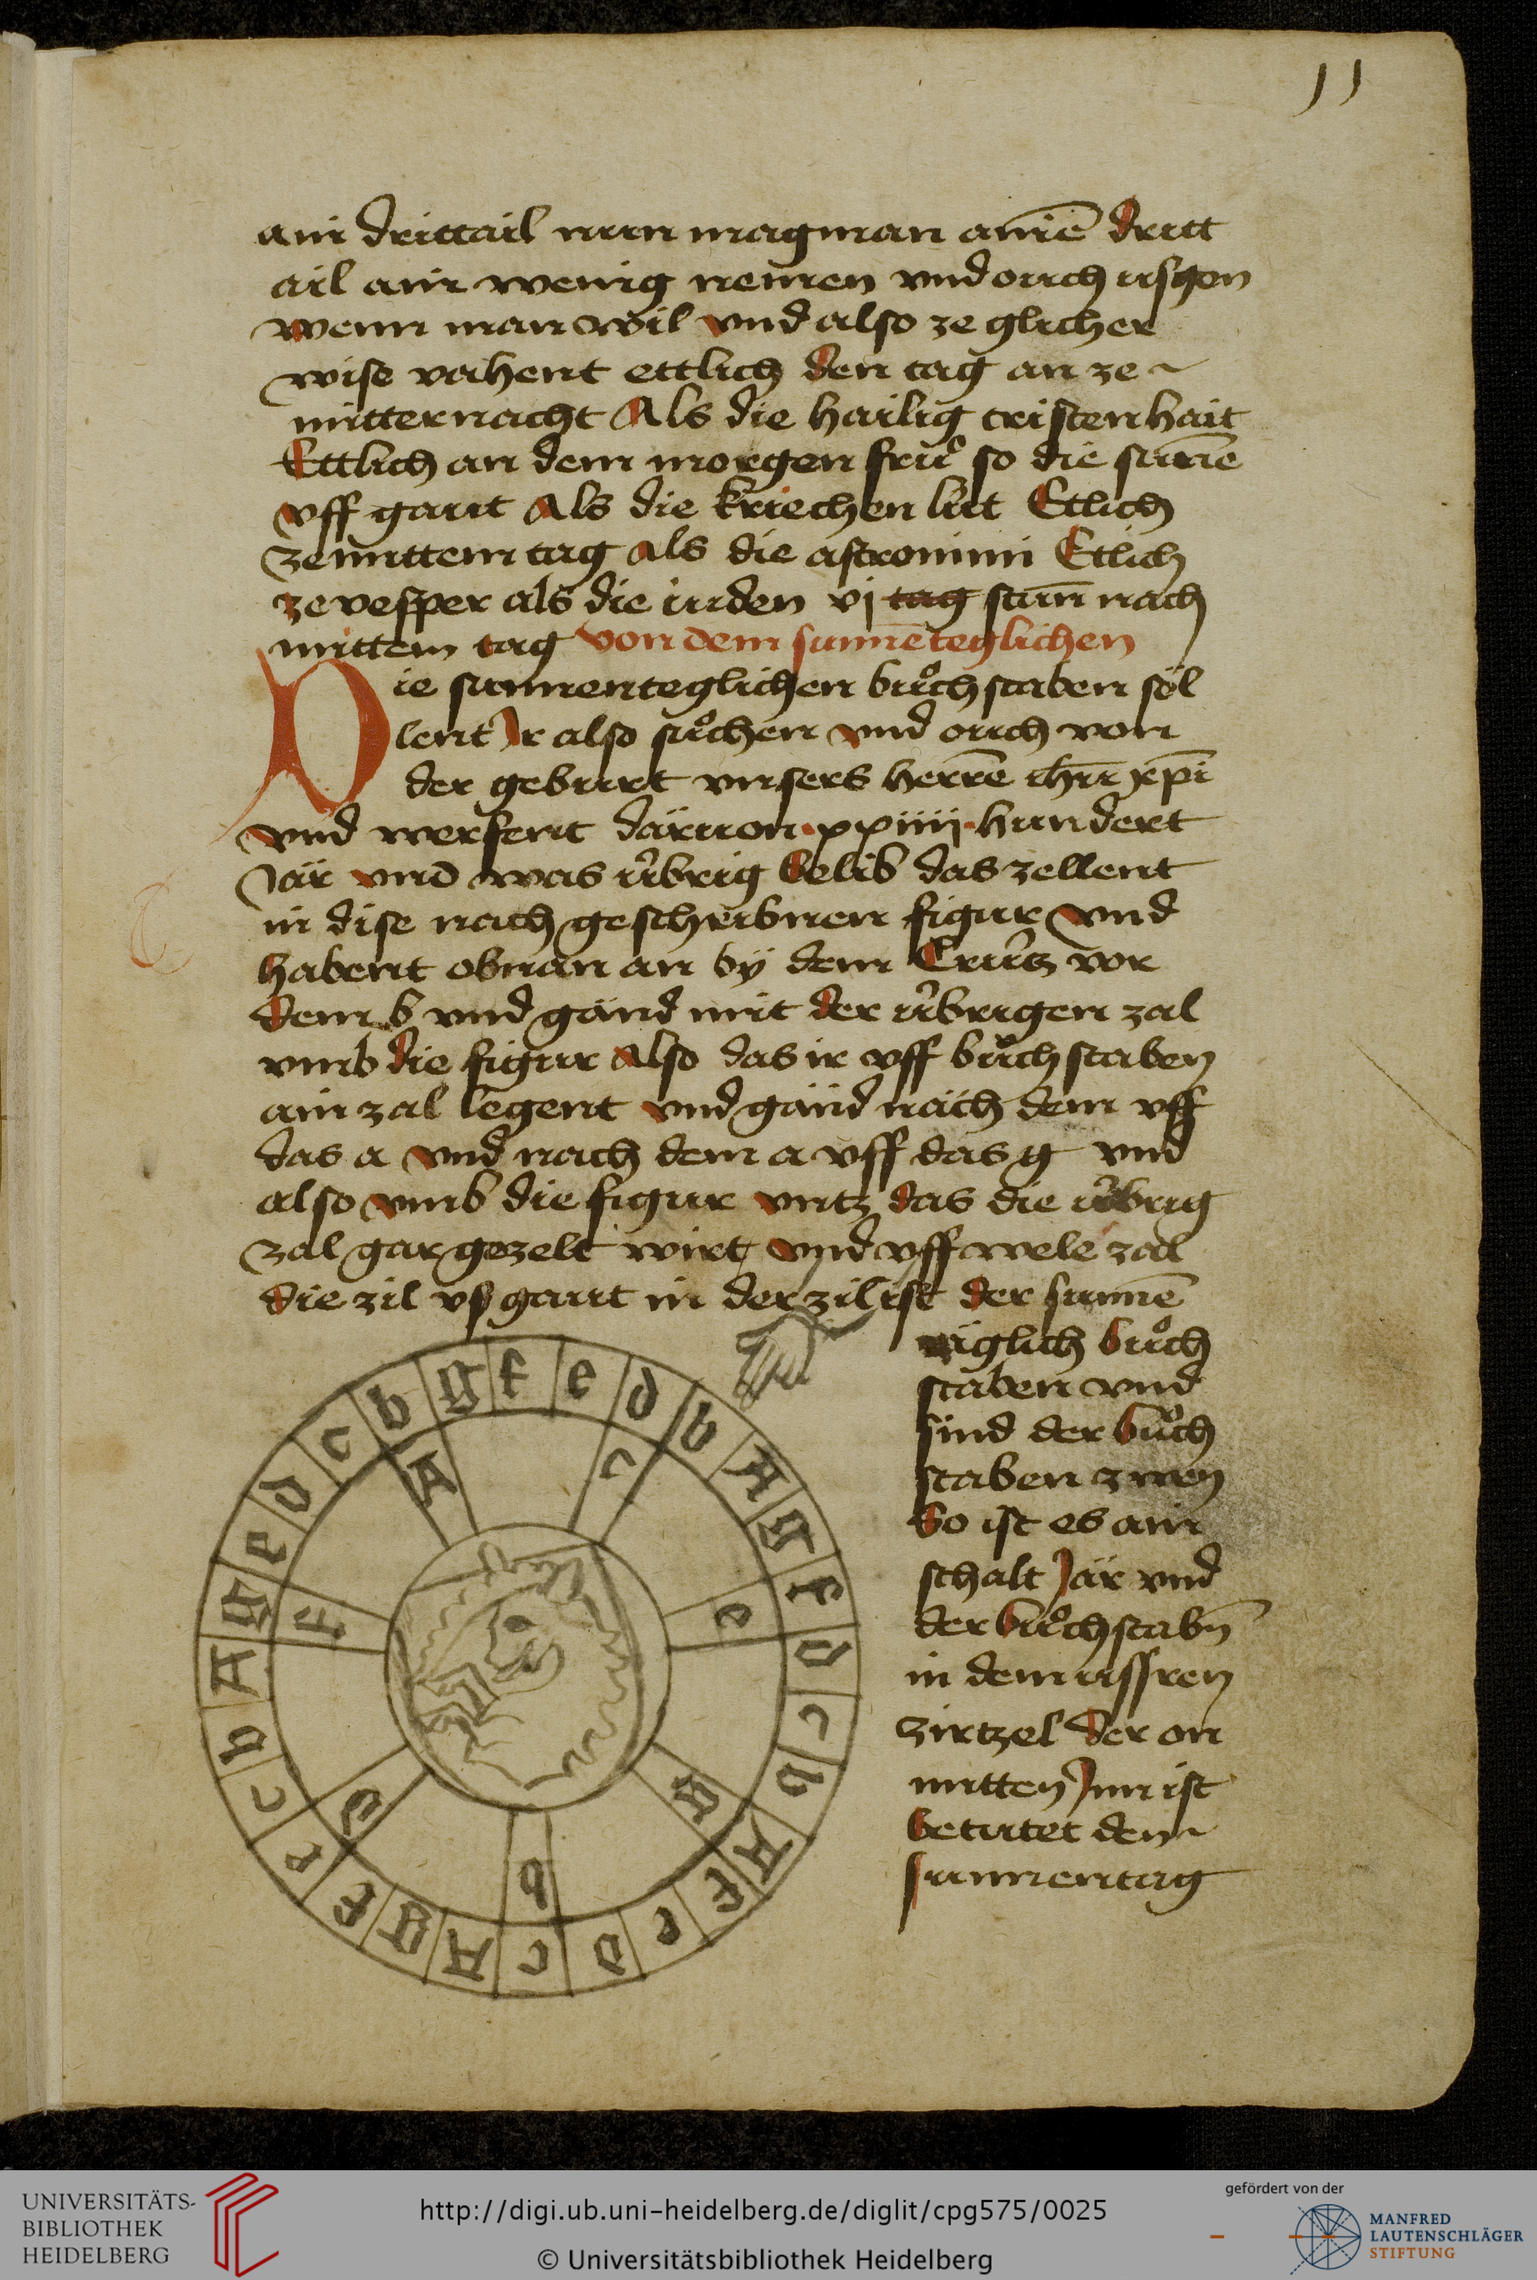 11
ain drittail nun mag man ainē dritt
ail ain wenig nemen vnd ouch usgen
wenn man wil vnd also ze glicher
wise vahent ettlich den tag an ze
mitternacht Als die hailig cristenhait
Ettlich an dem morgen frů so die sunnē
vff gant Als die kriechen lut Etlich
ze mittem tag als die astronimi Etlich
ze vesper als die iuden vj tag stūn nach
mittem tag von dem sunnēteglichen
Die sunnenteglichen bůchstaben söl
lent Ir also sůchen vnd ouch von
der geburt vnsers herrē ihū xpī
vnd werfent däruon xxiiii hundert
Jär vnd was übrig belib das zellent
in dise nach geschribnen figur vnd
habent obnan an bÿ dem Crütz vor
dem b vnd gänd mit der übrigen zal
vmb die figur Also das ir vff bůchstaben
ain zal legent vnd gänd näch dem vff
das a vnd nach dem a vff das g vnd
also vmb die figur vntz das die übrig
zal gar gezelt wirt vnd vff wele zal
die zil vß gant in der zil ist der sunnē
täglich bůch
staben vnd
sind der bůch
staben zwen
So ist es ain
schalt Jär vnd
der bůchstabn̄
in dem ussren
zirtzel der on
mitten Inn ist
betutet dem
sunnentag
b g f e d b A g f d c b A f e d c A g f e c b A g e d c
A c e g b d f
UNIVERSITÄTS-
BIBLIOTHEK
HEIDELBERG
http://digi.ub.uni-heidelberg.de/diglit/cpg575/0025
© Universitätsbibliothek Heidelberg
gefördert von der
MANFRED
LAUTENSCHLÄGER
STIFTUNG